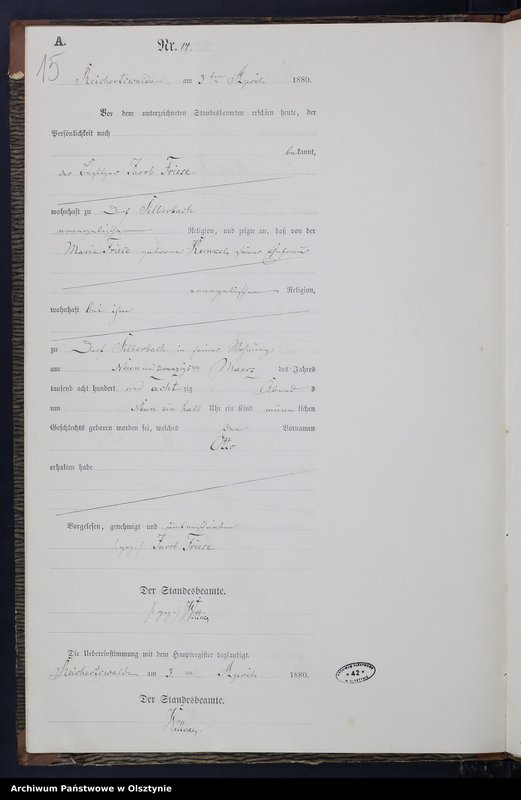 A.
Nr. 14.
15
Reichertswalde am 3ten April 1880.
Vor dem unterzeichneten Standesbeamten erschien heute, der
Persönlichkeit nach
bekannt,
der Besitzer Jacob Friese
wohnhaft zu Dorf Silberbach
evangelischer Religion, und zeigte an, daß von der
Marie Friese geborene Kunkel, seiner Ehefrau
evangelischer Religion,
wohnhaft bei ihm
zu Dorf Silberbach, in seiner Wohnung
am Neun und zwanzigsten Maerz des Jahres
tausend acht hundert und acht zig Abend s
um Neun ein halb Uhr ein Kind männ lichen
Geschlechts geboren worden sei, welches den Vornamen
Otto
erhalten habe
Vorgelesen, genehmigt und unterschrieben
(:gez:) Jacob Friese
Der Standesbeamte.
(:gez:)
Die Uebereinstimmung mit dem Hauptregister beglaubigt.
Reichertswalde am 3. ten April 1880.
Der Standesbeamte.
42
Archiwum Państwowe w Olsztynie